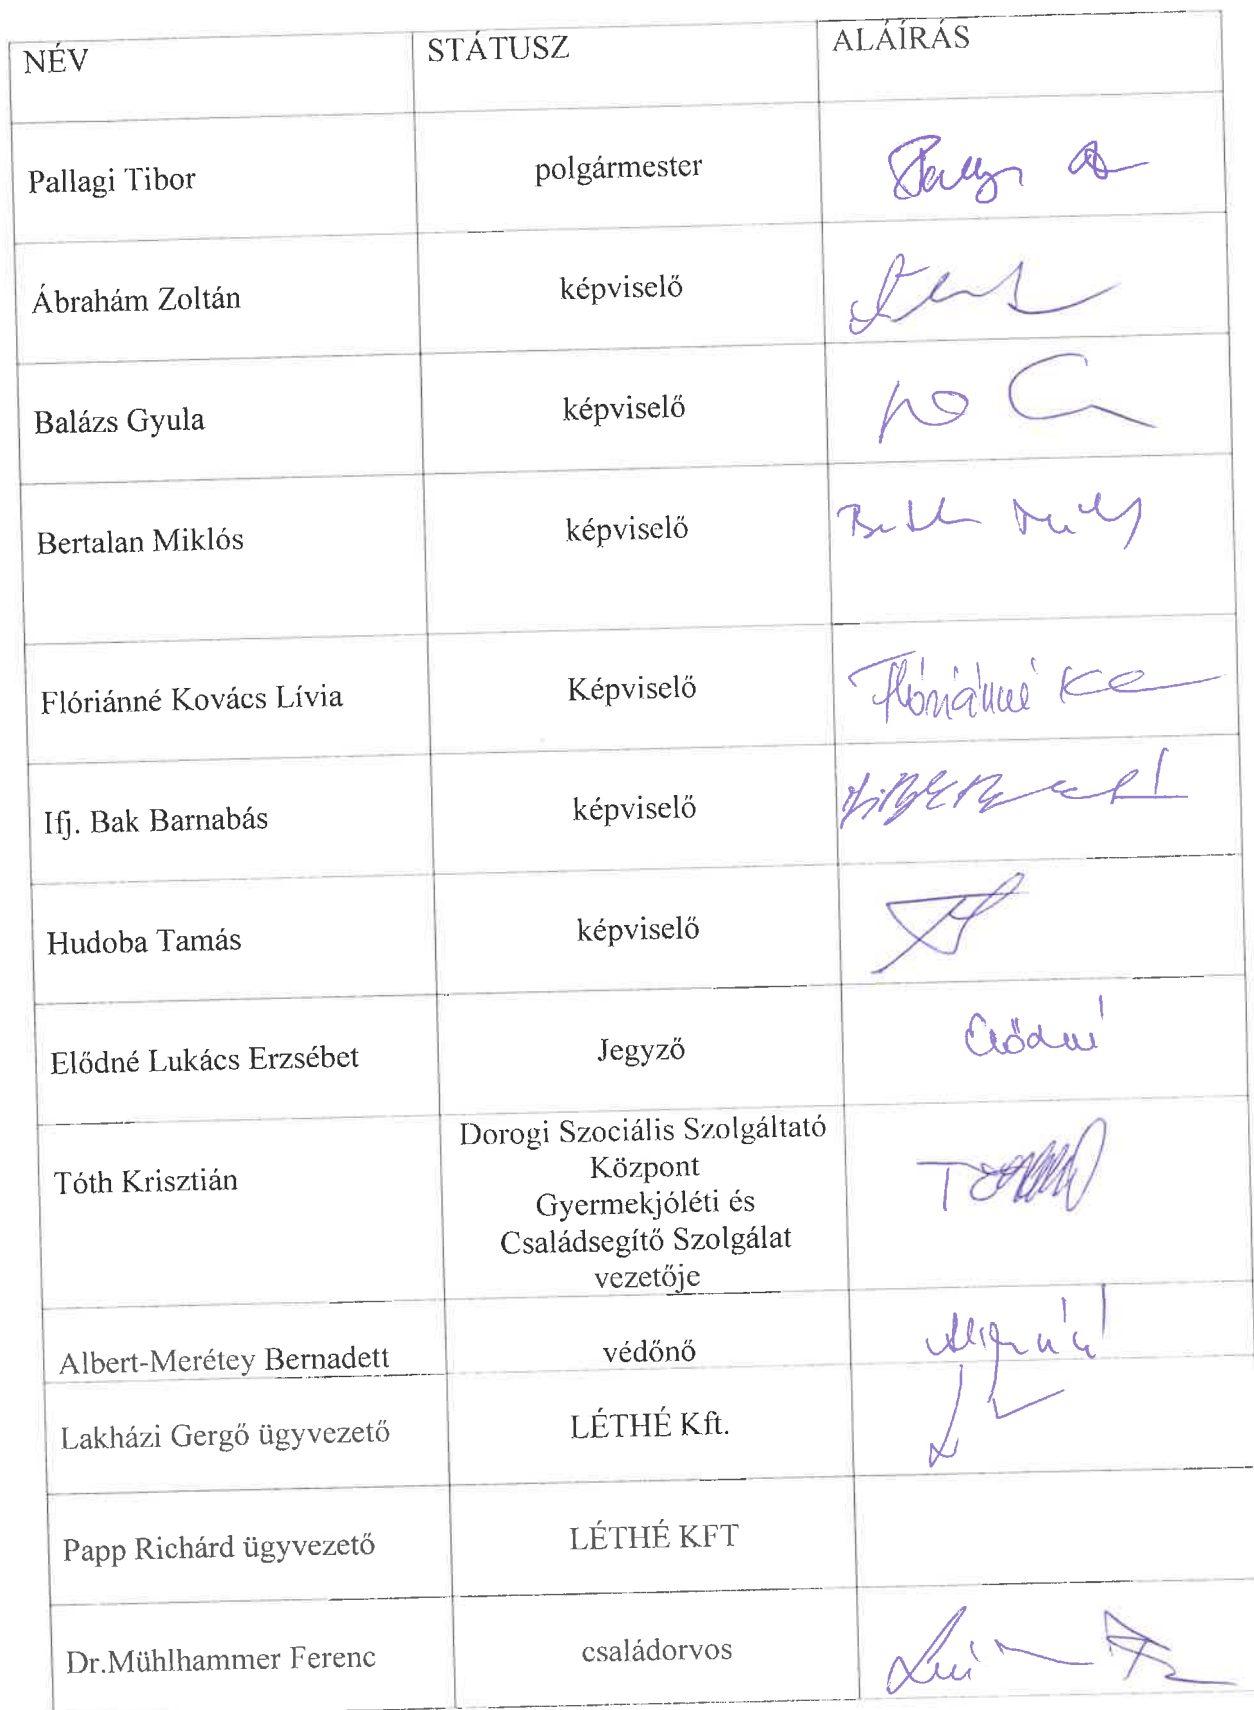 NÉV STÁTUSZ ALÁÍRÁS
Pallagi Tibor polgármester
Ábrahám Zoltán képviselő
Balázs Gyula képviselő
Bertalan Miklós képviselő
Flóriánné Kovács Lívia Képviselő Flóriánné
Ifj. Bak Barnabás képviselő
Hudoba Tamás képviselő
Elődné Lukács Erzsébet Jegyző Elődné
Tóth Krisztián Dorogi Szociális Szolgáltató
Központ
Gyermekjóléti és
Családsegítő Szolgálat
vezetője
Albert-Merétey Bernadett védőnő
Lakházi Gergő ügyvezető LÉTHÉ Kft.
Papp Richárd ügyvezető LÉTHÉ KFT
Dr.Mühlhammer Ferenc családorvos